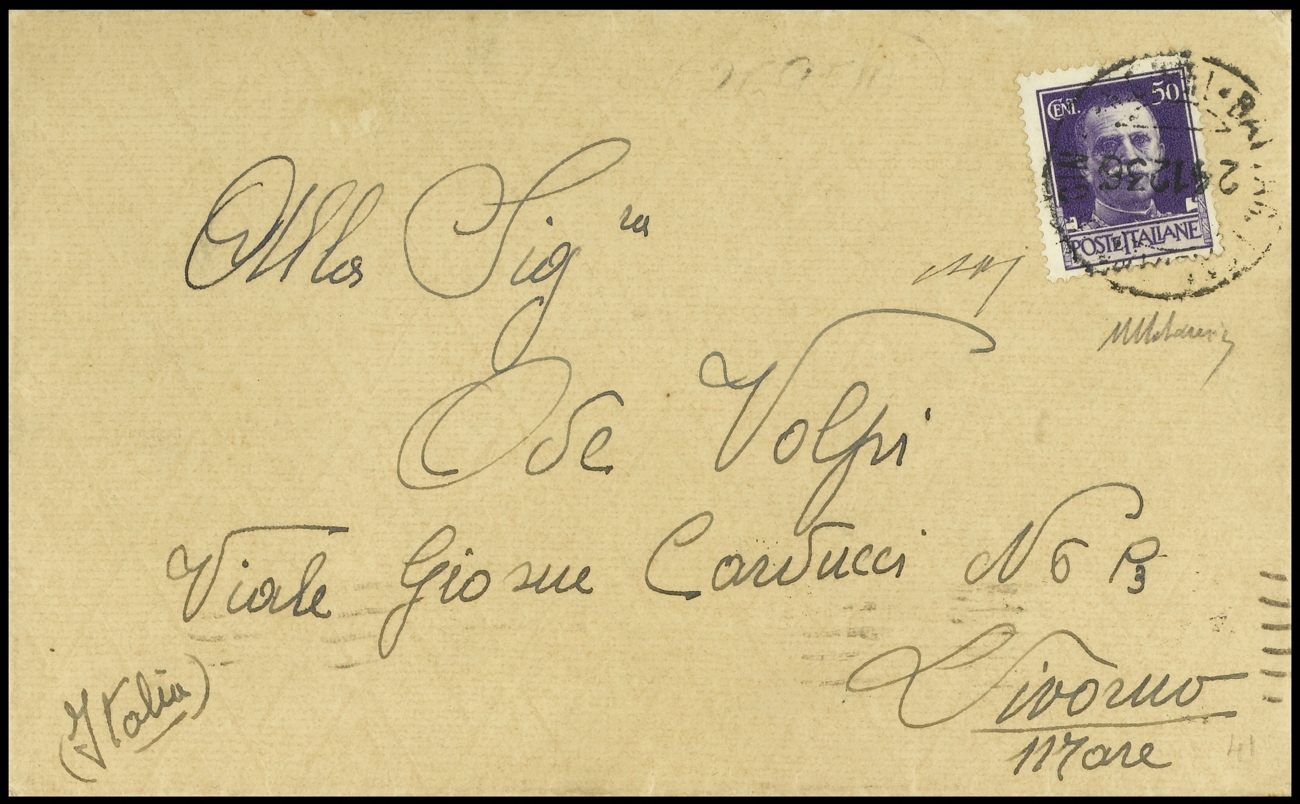 CENT. 50
POSTE ITALIANE
24 12 36
Alla Sig ra
Ode Volpi
Viale Giosue Carducci N 6 P3
Livorno
Mare
(Italia)
41